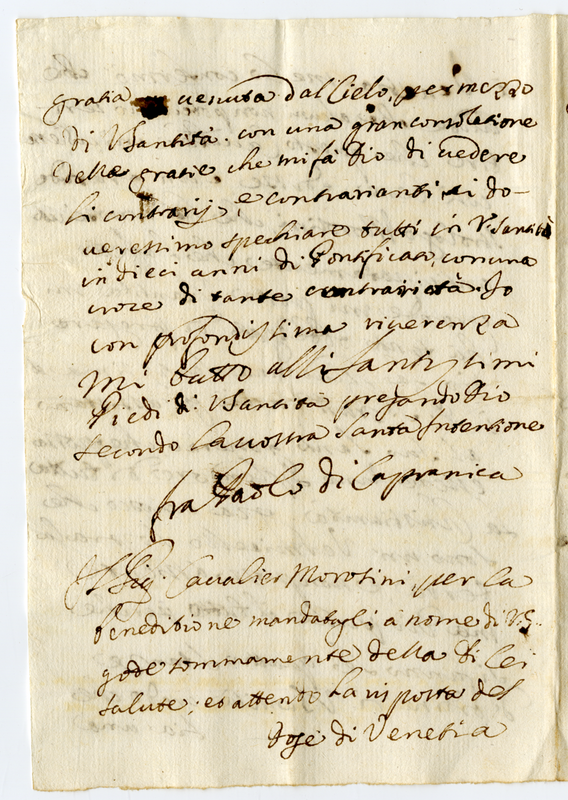 gratia venuta dal Cielo, per mezzo
di V. Santità con una gran consolatione
delle gratie, che mi fà Dio di vedere
li contrarij, e contrarianti, si do-
veressimo spechiare tutti in V. Santità
in dieci anni di Pontificato, con una
croce di tante contrarietà. Io
con profondissima riverenza
mi butto alli Santissimi
Piedi di V. Santità pregando Dio
secondo la vostra Santa Intentione
fra Paolo di Capranica
Il Sig. Cavalier Morosini, per la
beneditione mandatagli à nome di V. S.
gode sommamente della di lei
salute; et attendo la risposta del
Doge di Venetia